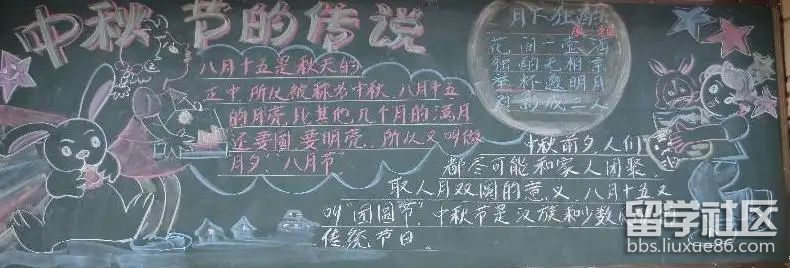 中秋节的传说
八月十五是秋天的
正中,所以被称为中秋,八月十五
的月亮,比其他几个月的满月
还要圆,要明亮,所以又叫做
月夕,"八月节"
月下独酌
花间一壶酒
独酌无相亲
举杯邀明月
对影成三人
中秋前夕人们
都尽可能和家人团聚,
取人月双圆的意义,八月十五又
叫"团圆节",中秋节是汉族和少数
传统节日。
留学社区
bbs.liuxue86.com